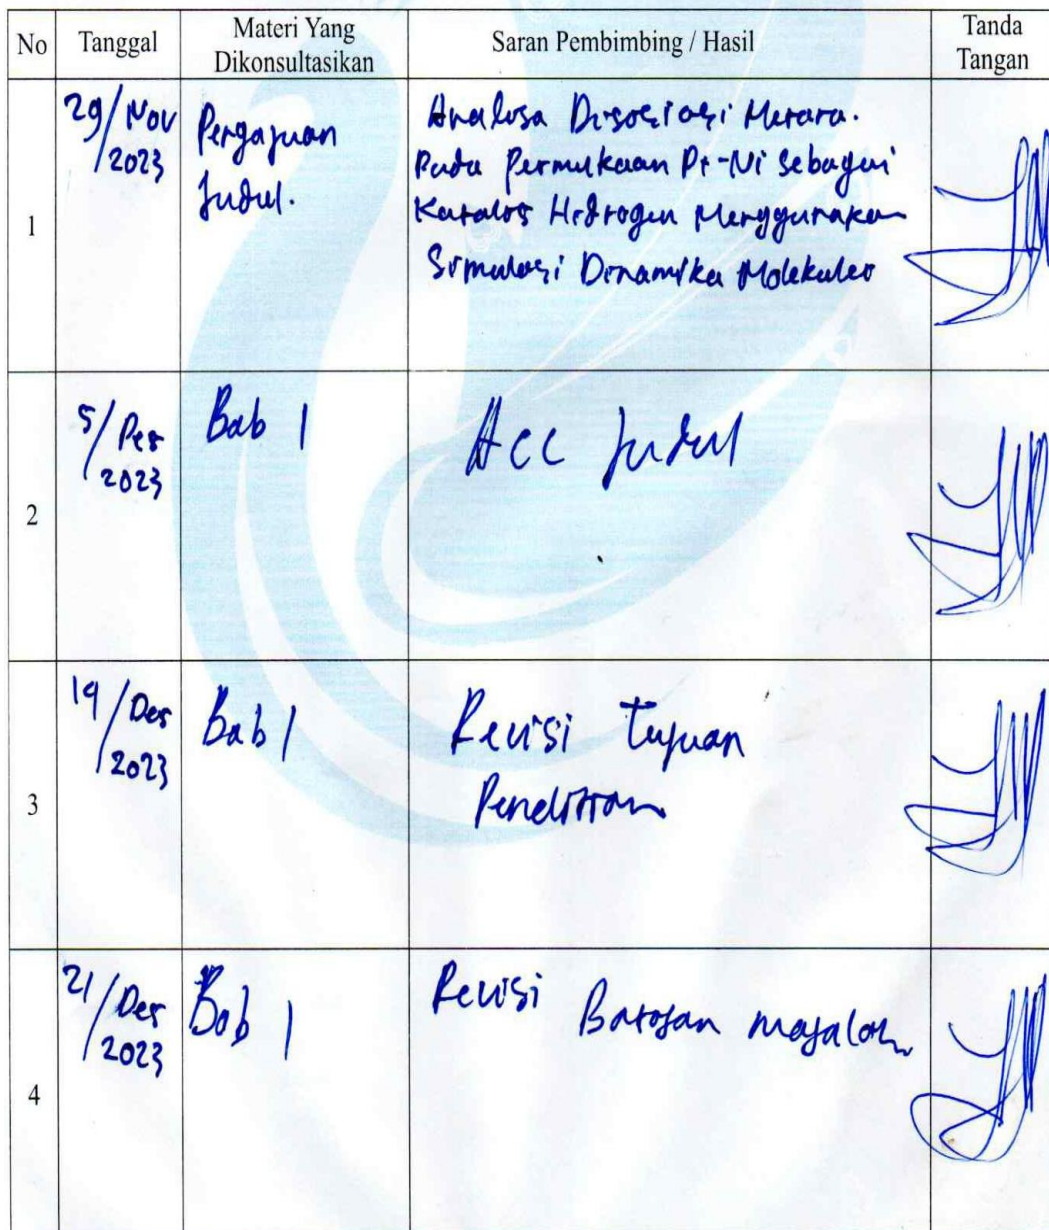 No
Tanggal
Materi Yang
Dikonsultasikan
Saran Pembimbing / Hasil
Tanda
Tangan
1
29/Nov
2023
Pengajuan
Judul.
Analisa Disosiasi Metana.
Pada Permukaan Pt-Ni Sebagai
Katalis Hidrogen Menggunakan
Simulasi Dinamika Molekuler
2
5/Des
2023
Bab 1
Acc Judul
3
19/Des
2023
Bab 1
Revisi Tujuan
Penelitian
4
21/Des
2023
Bab 1
Revisi Batasan masalah